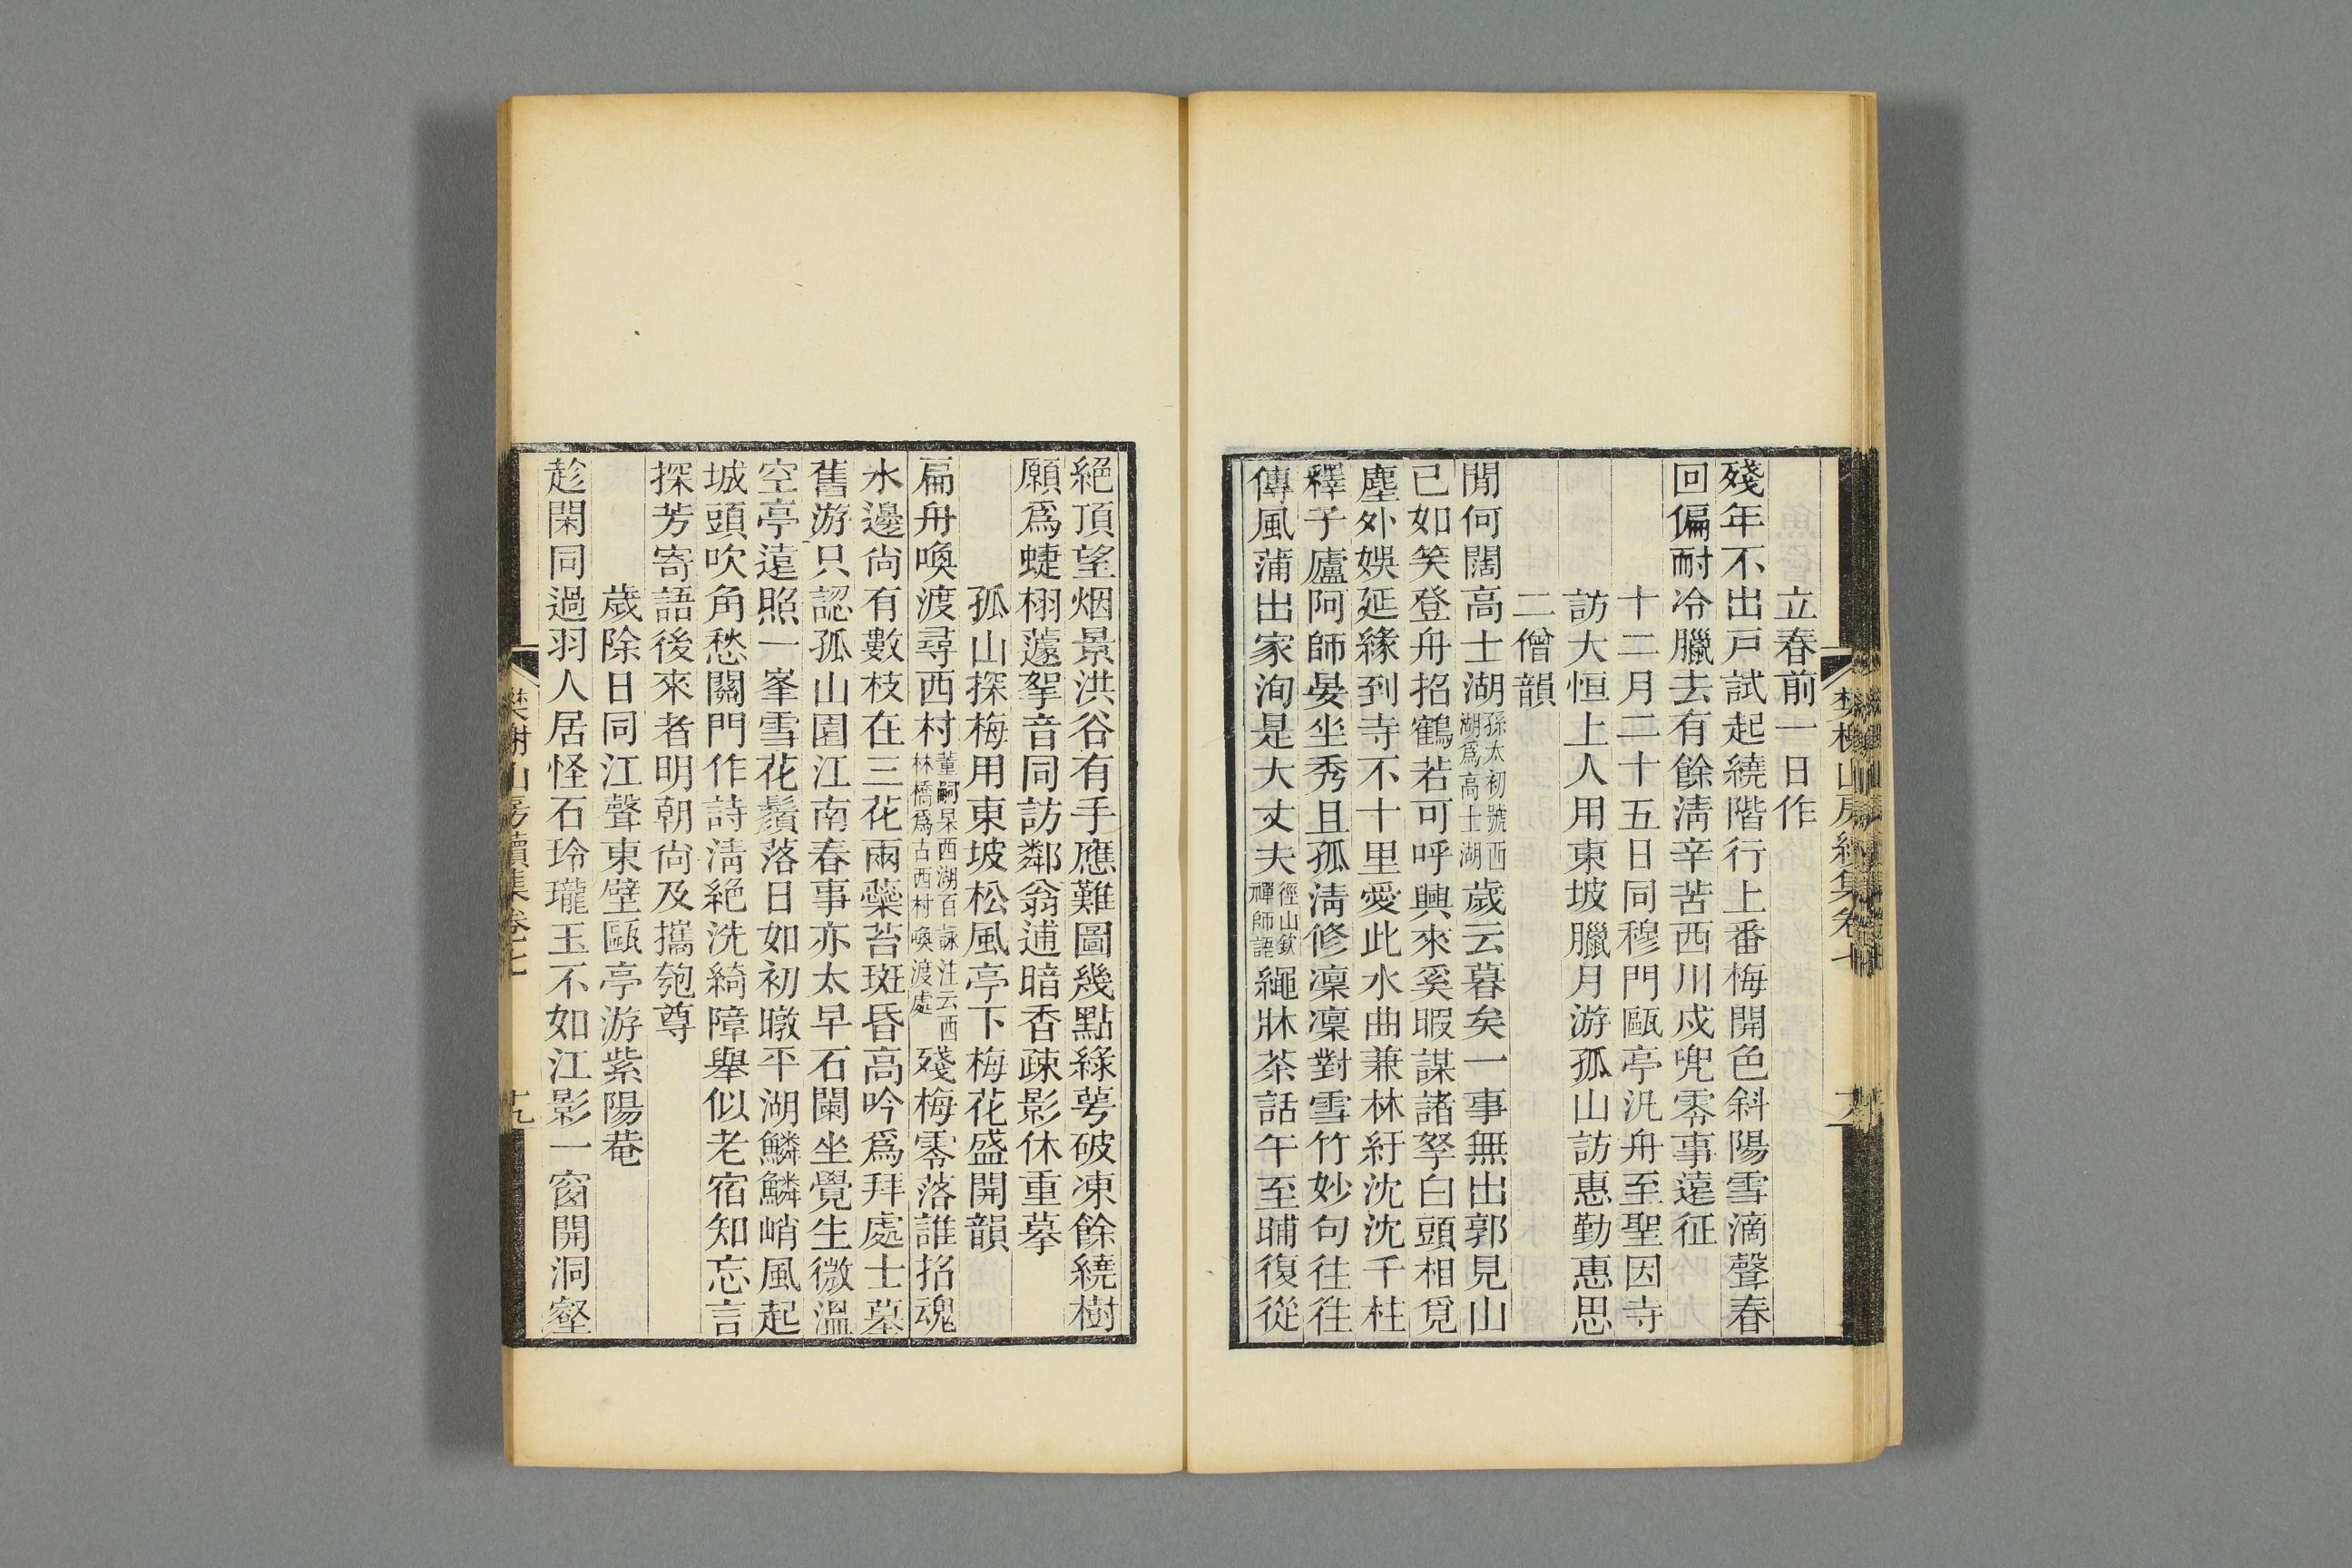 立春前一日作
殘年不出戸試起繞階行上番梅開色斜陽雪滴聲春
回偏耐冷臘去有餘淸辛苦西川戍兜零事遠征
十二月二十五日同穆門甌亭汎舟至聖因寺
訪大恒上人用東坡臘月游孤山訪惠勤惠思
二僧韻
閒何闊高士湖孫太初號西湖爲高士湖歲云暮矣一事無出郭見山
已如笑登舟招鶴若可呼興來奚暇謀諸孥白頭相覓
塵外娛延緣到寺不十里愛此水曲兼林紆沈沈千柱
釋子廬阿師晏坐秀且孤淸修凜凜對雪竹妙句往往
傳風蒲出家洵是大丈夫徑山欽禪師語繩牀茶話午至晡復從
絕頂望烟景洪谷有手應難圖幾點綠萼破凍餘繞樹
願爲蜨栩蘧挐音同訪鄰翁逋暗香疎影休重摹
孤山探梅用東坡松風亭下梅花盛開韻
扁舟喚渡尋西村董嗣杲西湖百詠注云西林橋爲古西村喚渡處殘梅零落誰招魂
水邊尙有數枝在三花兩蘂苔斑昏高吟爲拜處士墓
舊游只認孤山園江南春事亦太早石闌坐覺生微溫
空亭遠照一峯雪花鬚落日如初暾平湖鱗鱗峭風起
城頭吹角愁關門作詩淸絕洗綺障舉似老宿知忘言
探芳寄語後來者明朝尙及攜匏尊
歲除日同江聲東壁甌亭游紫陽菴
趁閑同過羽人居怪石玲瓏玉不如江影一窗開洞壑
樊榭山房續集卷七
十九